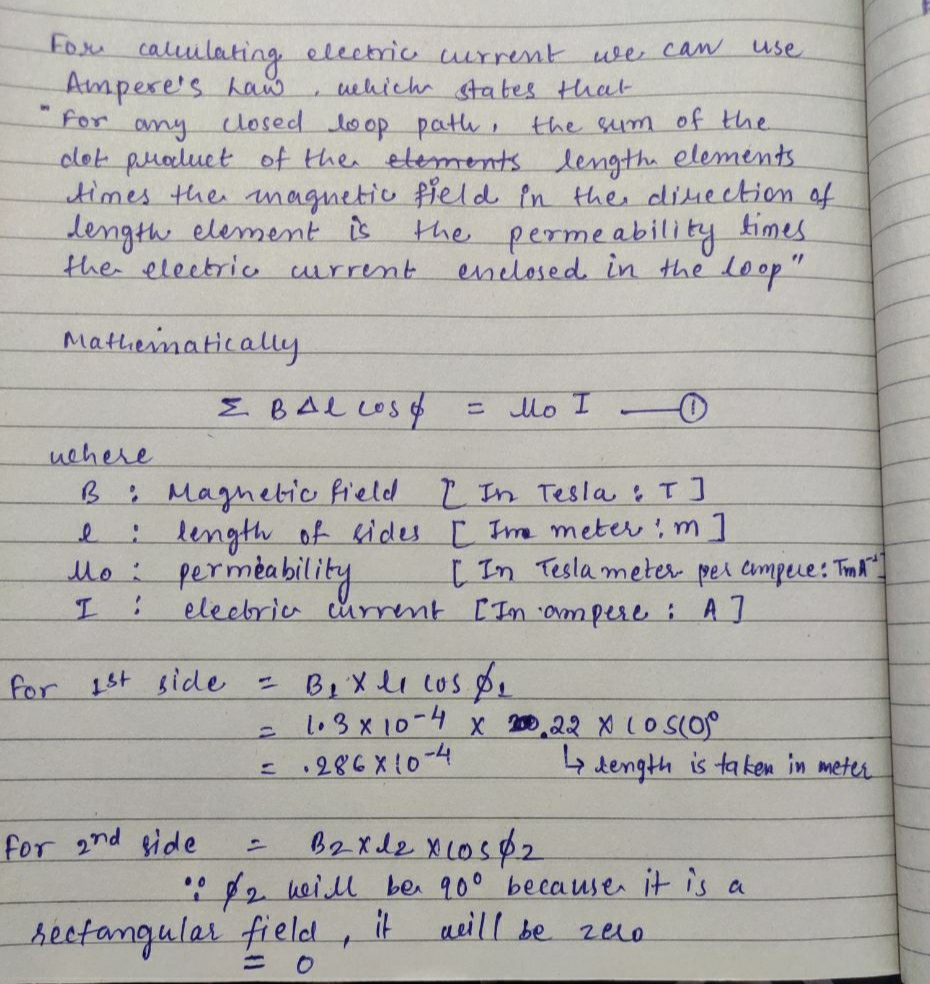 For calculating electric current we can use
Ampere's Law, which states that
"For any closed loop path, the sum of the
dot product of the elements length elements
times the magnetic field in the direction of
length element is the permeability times
the electric current enclosed in the loop"
Mathematically
Σ B Δl cos ϕ = μ0 I —— ①
where
B : Magnetic field [ In Tesla : T ]
l : length of sides [ In meter : m ]
μ0 : permeability [ In Tesla meter per ampere : TmA⁻¹ ]
I : electric current [ In ampere : A ]
for 1st side = B1 × l1 cos ϕ1
= 1.3 × 10-4 × 0.22 × cos(0)°
= .286 × 10-4 ↳ length is taken in meter
for 2nd side = B2 × l2 × cos ϕ2
∵ ϕ2 will be 90° because it is a
rectangular field, it will be zero
= 0